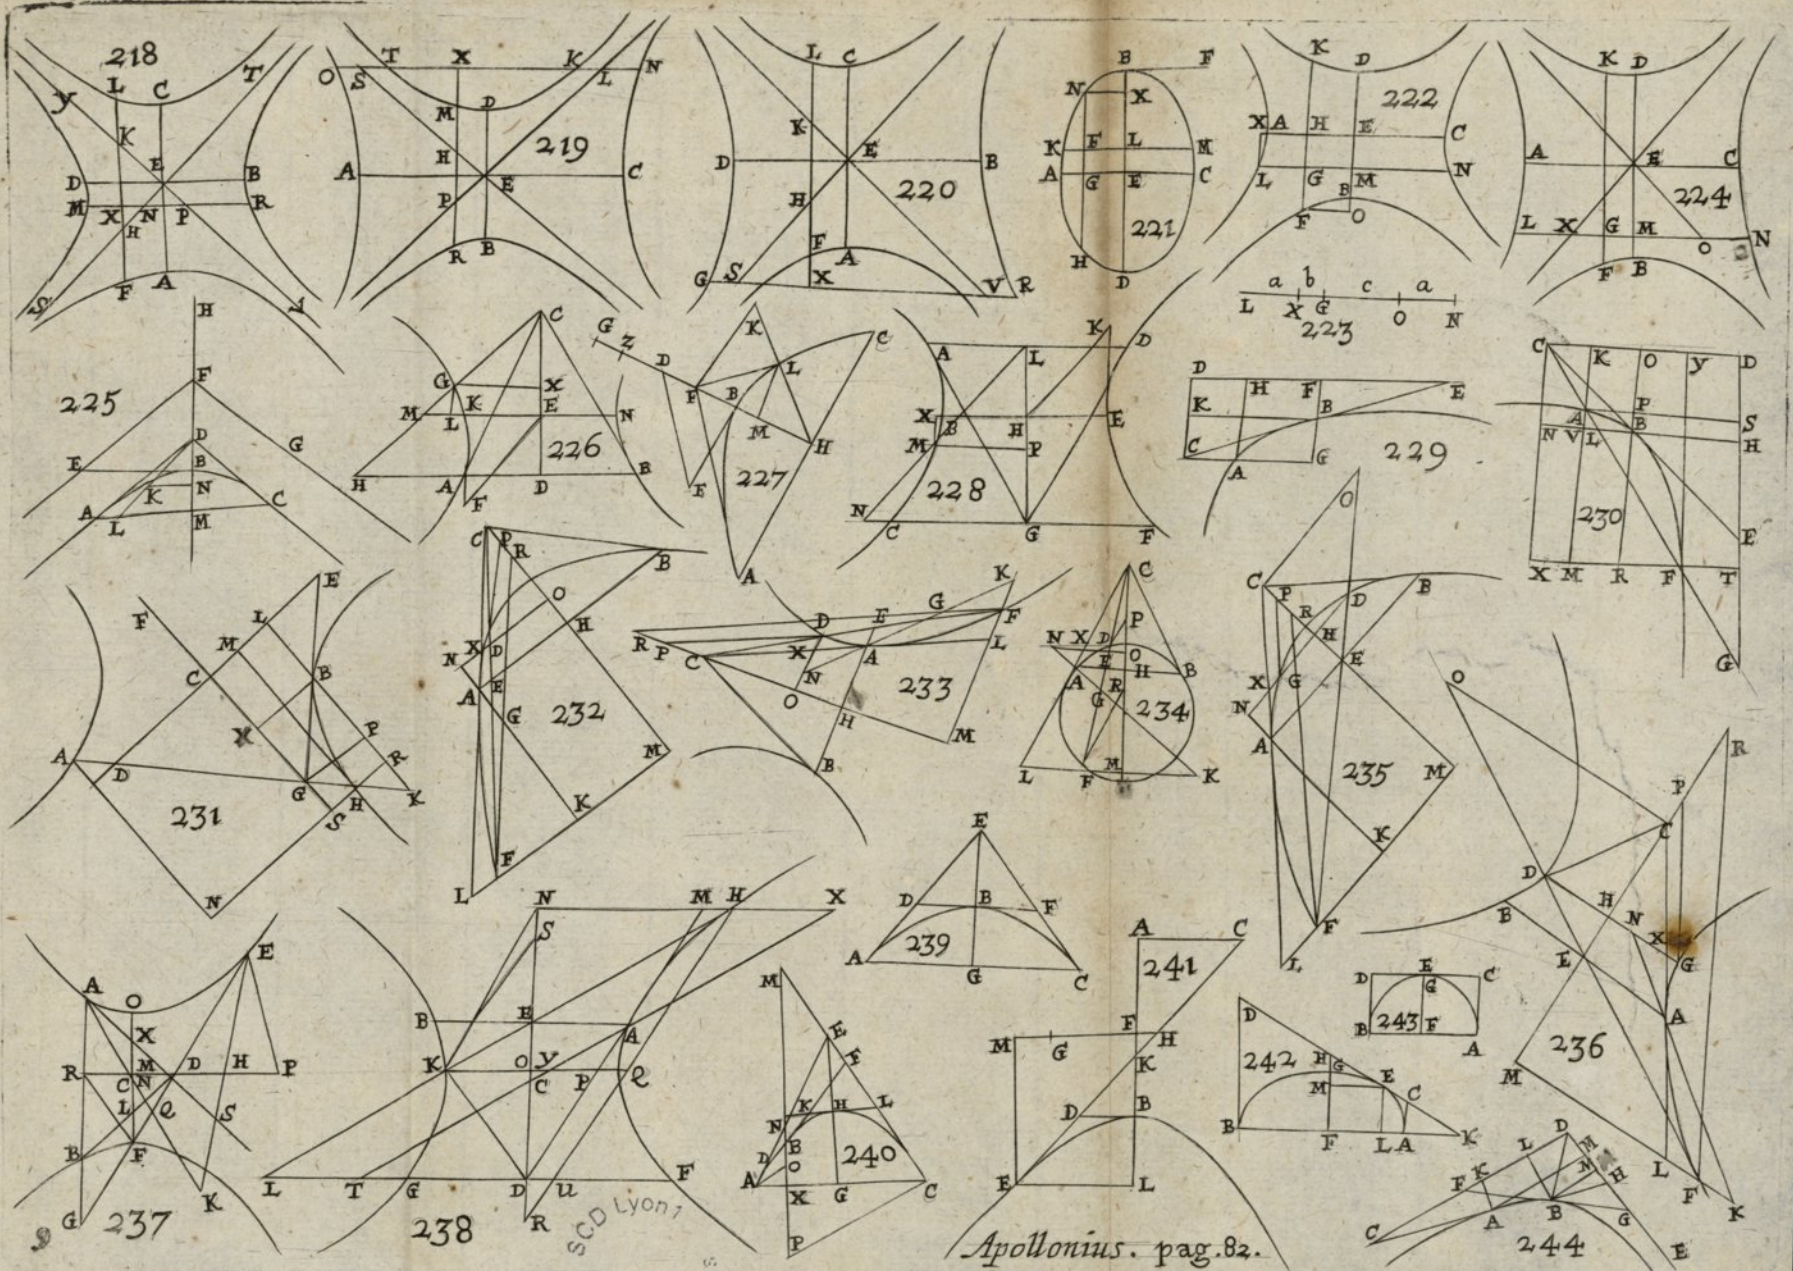 218
L C T
Y
K
E
D B
M X N P R
H
S F A
219
T X K N
O S L
M D
H
A E C
P
R B
220
L C
K
D E B
H
F
A
G S X V R
221
B F
N X
F L
K M
A G E C
H
D
222
K D
X A H E C
L G M N
B
F O
223
a b c a
L X G O N
224
K D
A E C
L X G M O N
F B
225
H
F
G
D
E B
K N
A C
L M
226
C
G X
K E
M L N
H A D B
F
227
G Z D
K C
F B L
M H
F
A
228
K D
A L
X B H E
M P
N C G F
229
D H F E
K B
C
A G
230
C K O Y D
A P S
N V L B H
E
X M R F T
G
231
E
F L
M
C B
X P
R
A D G H K
S
N
232
C P R B
O
H
X D
N
A E
G
M
K
F
L
233
K
G
D E F
R P X A L
C N
O
H M
B
234
C
P
N X D O
E H B
A R
G
L F M K
235
O
C P B
R D
H
E
X G
N
A
M
K
F
L
236
O
R
P
C
D
H
B N
X
E G
A
M
L F K
237
E
A O
X
R M D H P
C N
L Q S
B F
G K
238
N M H X
S
B E A
K O Y Q
C P
L T G D u F
R
239
E
D B F
A G C
240
M
E
F
K H L
N
B
D O
A X G C
P
241
A C
F H
M G K
D B
E L
242
D
H G
M E C
B F L A K
243
D E C
G
B F A
244
D M
L N
K H
F
A B G
C E
SCD Lyon 1
Apollonius. pag.82.